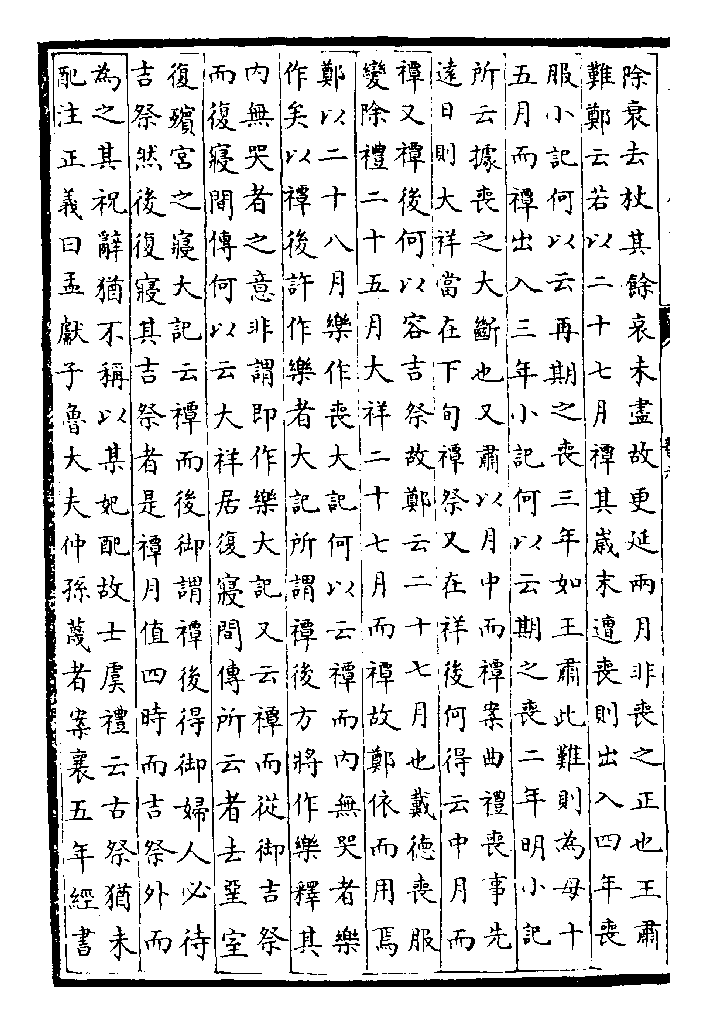 除衰去杖其餘哀未盡故更延兩月非喪之正也王肅
難鄭云若以二十七月禫其歲末遭喪則出入四年喪
服小記何以云再期之喪三年如王肅此難則為母十
五月而禫出入三年小記何以云期之喪二年明小記
所云據喪之大斷也又肅以月中而禫案曲禮喪事先
遠日則大祥當在下句禫祭又在祥後何得云中月而
禫又禫後何以容吉祭故鄭云二十七月也戴德喪服
變除禮二十五月大祥二十七月而禫故鄭依而用焉
鄭以二十八月樂作喪大記何以云禫而內無哭者樂
作矣以禫後許作樂者大記所謂禫後方將作樂釋其
內無哭者之意非謂即作樂大記又云禫而從御吉祭
而復寢間傳何以云大祥居復寢問傳所云者去堊室
復殯宮之寢大記云禫而後御謂禫後得御婦人必待
吉祭然後復寢其吉祭者是禫月值四時而吉祭外而
為之其祝辭猶不稱以某妃配故士虞禮云古祭猶未
配注正義曰孟獻子魯大夫仲孫蔑者案襄五年經書